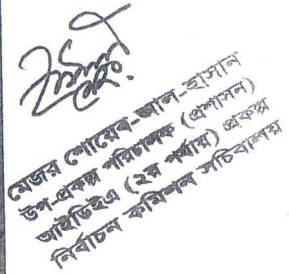 মেজর শোয়েব-আল-হাসান
উপ-প্রকল্প পরিচালক (প্রশাসন)
আইডিইএ (২য় পর্যায়) প্রকল্প
নির্বাচন কমিশন সচিবালয়